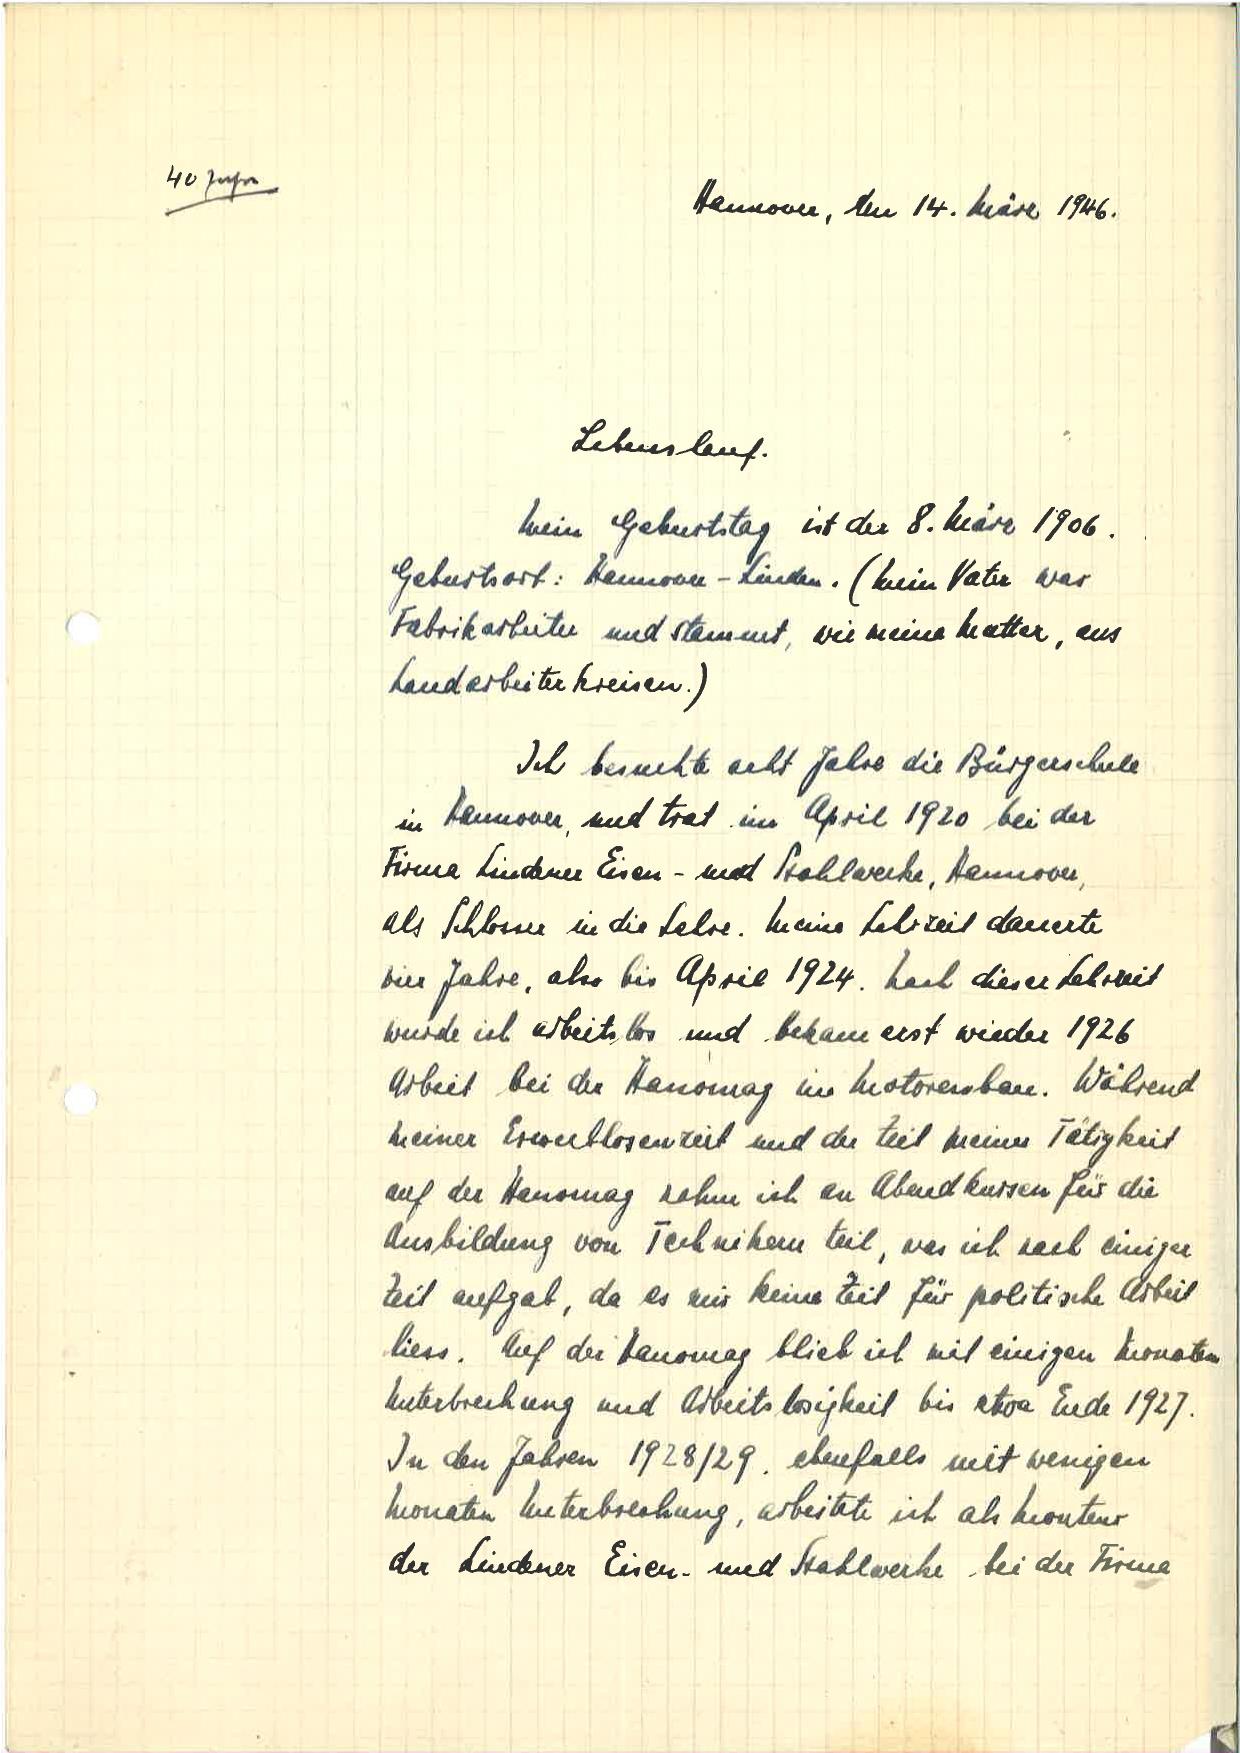 40 Jahre
Hannover, den 14. März 1946.
Lebenslauf.
Mein Geburtstag ist der 8. März 1906.
Geburtsort: Hannover-Linden. (Mein Vater war
Fabrikarbeiter und stammt, wie meine Mutter, aus
Landarbeiterkreisen.)
Ich besuchte acht Jahre die Bürgerschule
in Hannover, und trat im April 1920 bei der
Firma Lindener Eisen- und Stahlwerke, Hannover,
als Schlosser in die Lehre. Meine Lehrzeit dauerte
vier Jahre, also bis April 1924. Nach dieser Lehrzeit
wurde ich arbeitslos und bekam erst wieder 1926
Arbeit bei der Hanomag im Motorenbau. Während
meiner Erwerblosenzeit und der Zeit meiner Tätigkeit
auf der Hanomag nahm ich an Abendkursen für die
Ausbildung von Technikern teil, was ich nach einiger
Zeit aufgab, da es mir keine Zeit für politische Arbeit
liess. Auf der Hanomag blieb ich mit einigen Monaten
Unterbrechung und Arbeitslosigkeit bis etwa Ende 1927.
In den Jahren 1928/29, ebenfalls mit wenigen
Monaten Unterbrechung, arbeitete ich als Monteur
der Lindener Eisen- und Stahlwerke bei der Firma